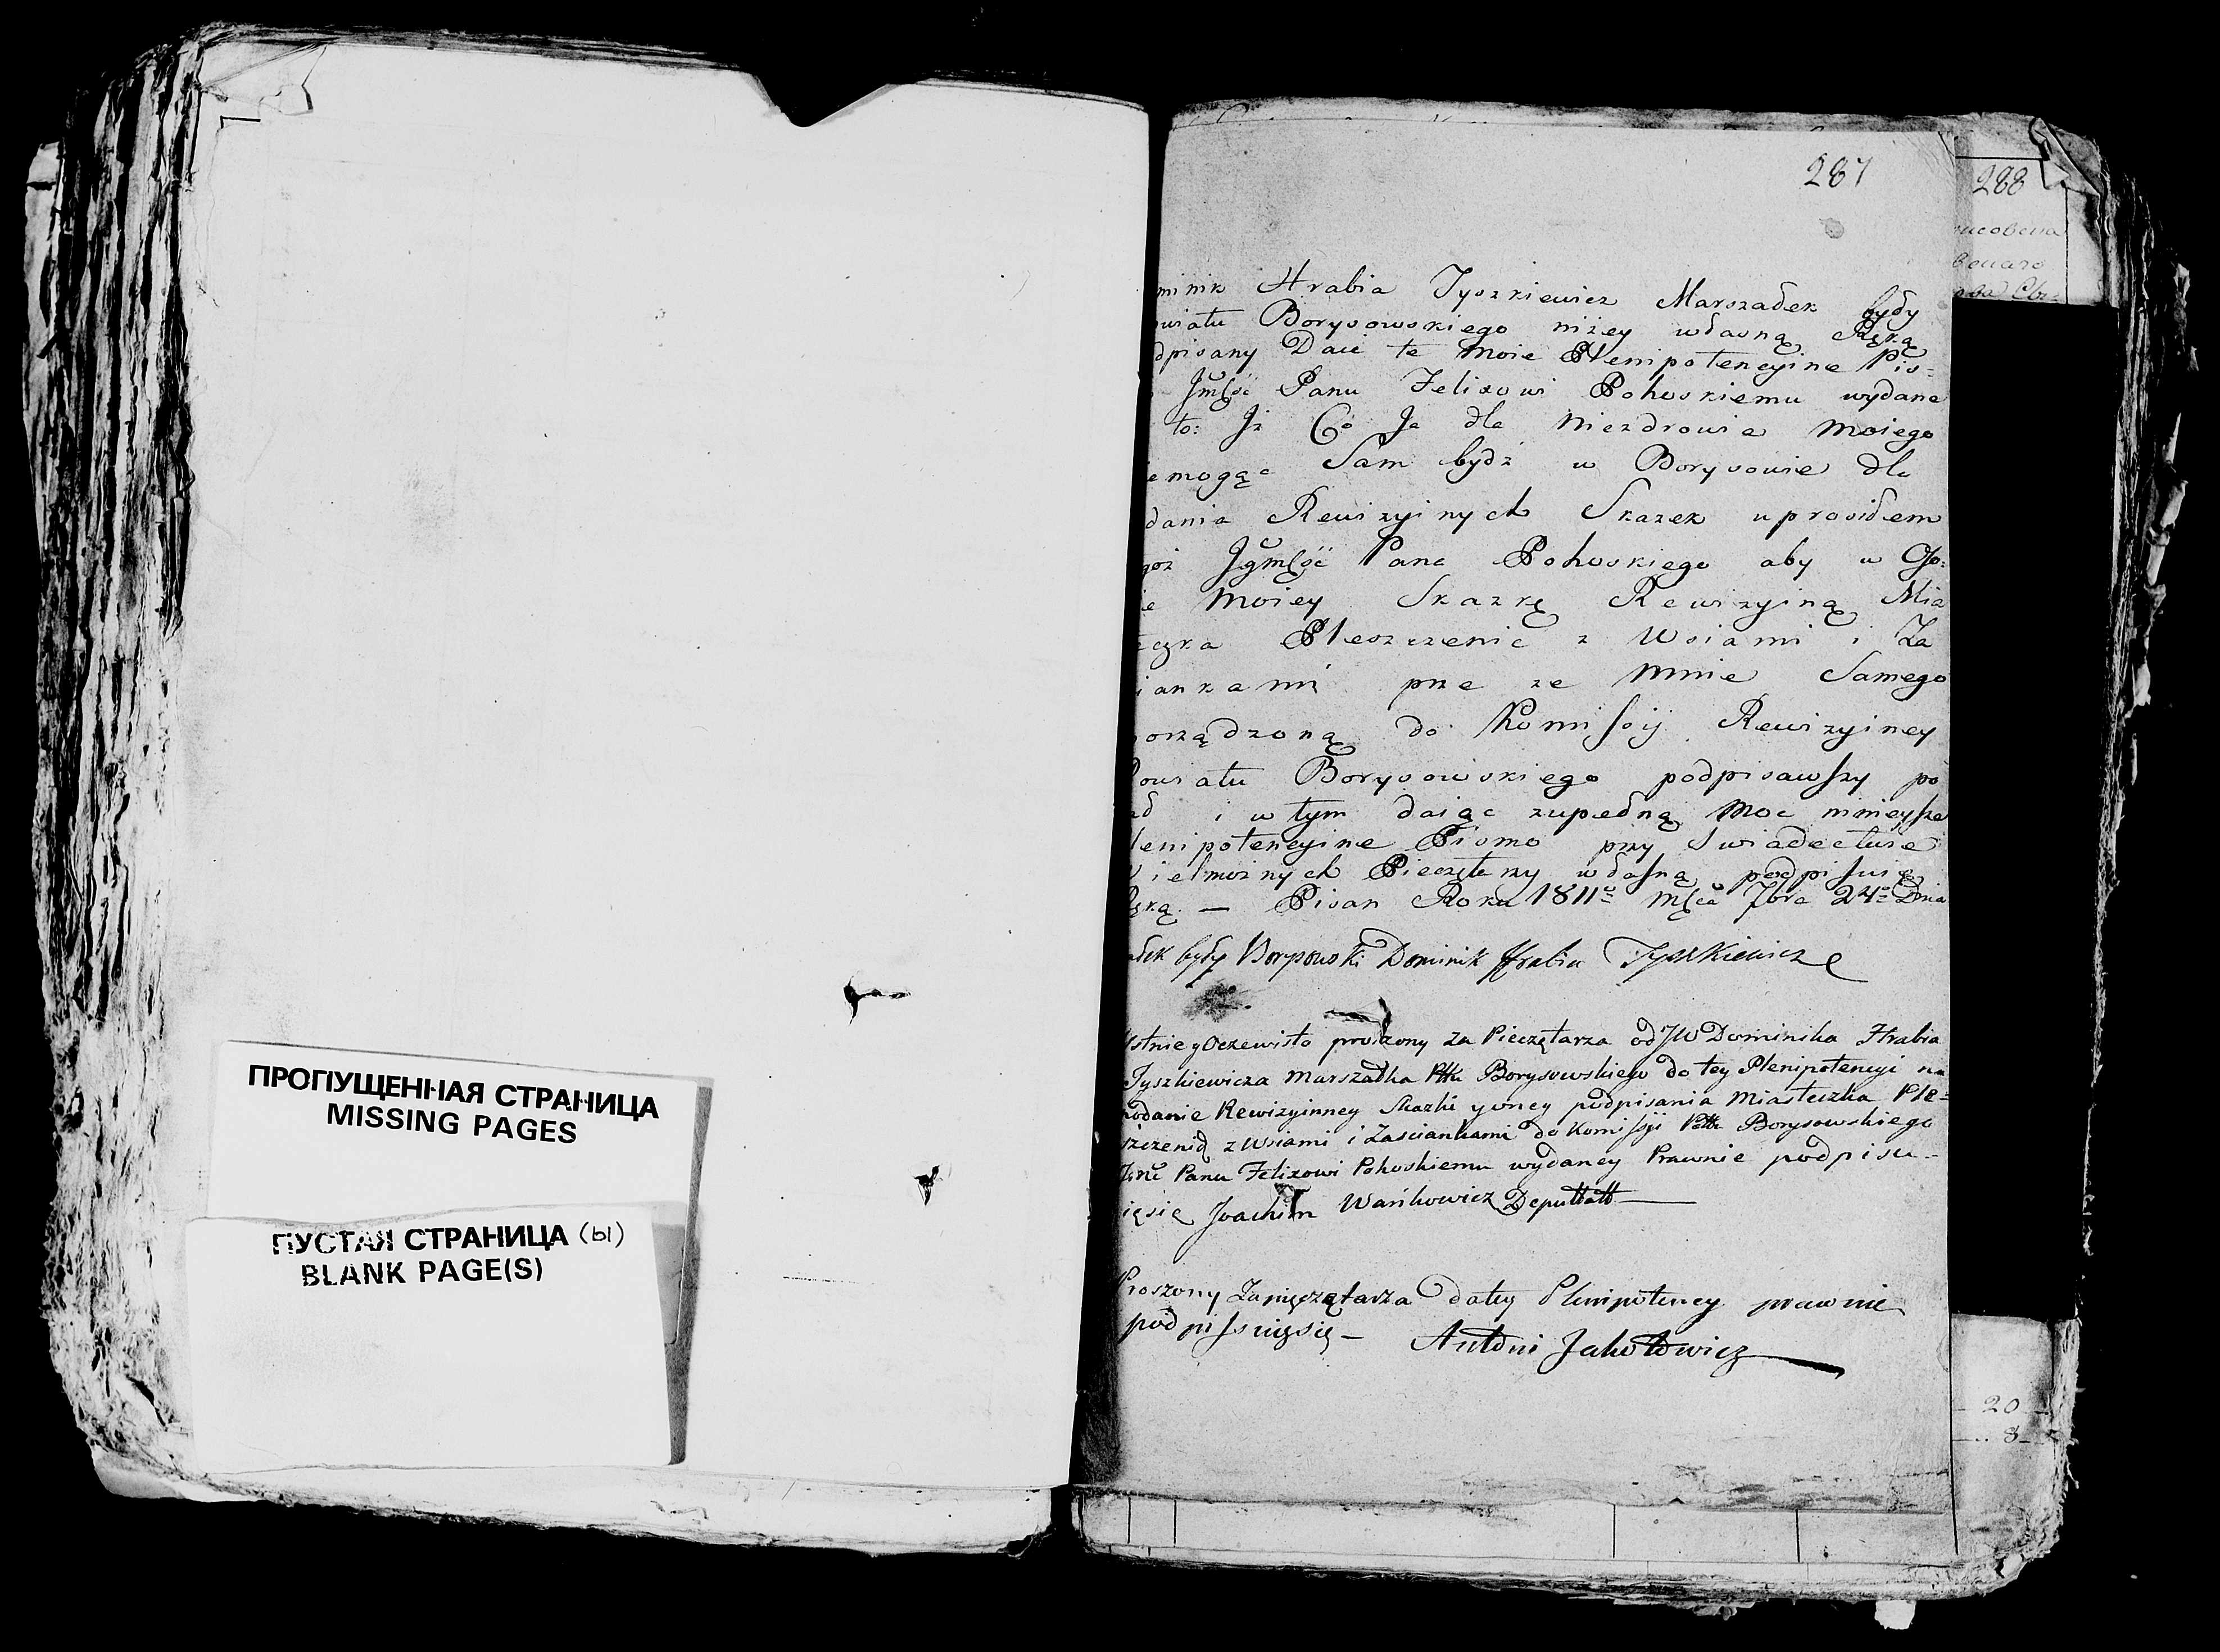 ПРОПУЩЕННАЯ СТРАНИЦА
MISSING PAGES
ПУСТАЯ СТРАНИЦА (ы)
BLANK PAGE(S)
287
minik Hrabia Tyszkiewicz Marszałek były
wiatu Borysowskiego niżey własną Ręką
dpisany Daię te moie Plenipotencyine Pis=
Jmść Panu Felixowi Pohoskiemu wydane
to: Jż Co Ja dla Niezdrowia Moiego
emogąc Sam bydź w Borysowie dla
dania Rewizyinych Skazek uprosiłem
goż Jgmść Pana Pohoskiego aby w Oso=
ie Moiey Skazkę Rewizyiną Mia
eczka Pleszczenic z Wsiami i Za
iankami prze ze Mnie Samego
orządzoną do Komissyi Rewizyiney
Powiatu Borysowskiego podpisawszy po
ał i w tym daiąc zupełną Moc ninieysze
lenipotencyine Pismo przy Swiadectwie
Wielmożnych Pieczętarzy własną podpisuię
Ręką. — Pisan Roku 1811o Mśca 7bra 24o Dnia
ałek były Borysowski Dominik Hrabia Tyszkiewicz
Ustnie y Oczewisto proszony za Pieczętarza od JW Dominika Hrabia
Tyszkiewicza Marszałka Pttu Borysowskiego do tey Plenipotencyi na
podanie Rewizyinney Skazki y oney podpisania Miasteczka Ple=
szczenic z Wsiami i Zasciankami do Komissyi Pttu Borysowskiego
Panu Felixowi Pohoskiemu wydaney Prawnie podpisu-
ięsię Joachim Wańkowicz Deputtatt
Proszony Zapięczętarza dotey Plenipotencyi prawnie
podpissuięsię — Antoni Jakotowicz
288
20
8